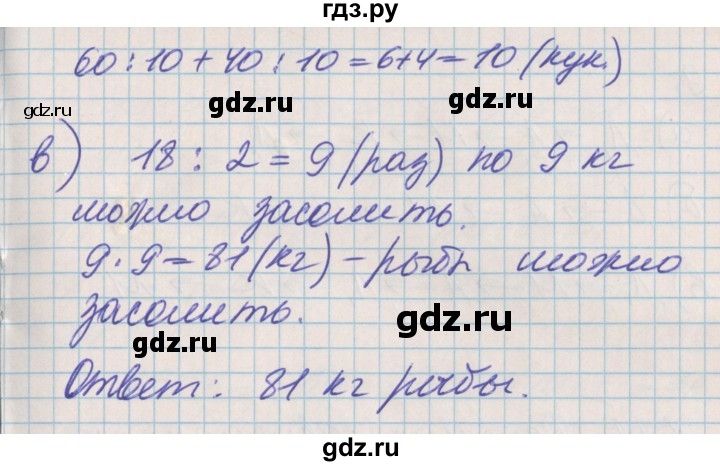 гдз.ру
60 : 10 + 40 : 10 = 6+4 = 10 (кук.)
gdz.ru
gdz.ru
gdz.ru
в) 18 : 2 = 9 (раз) по 9 кг
можно засолить.
9 · 9 = 81 (кг) – рыбы можно
засолить.
gdz.ru
gdz.ru
Ответ: 81 кг рыбы.
gdz.ru